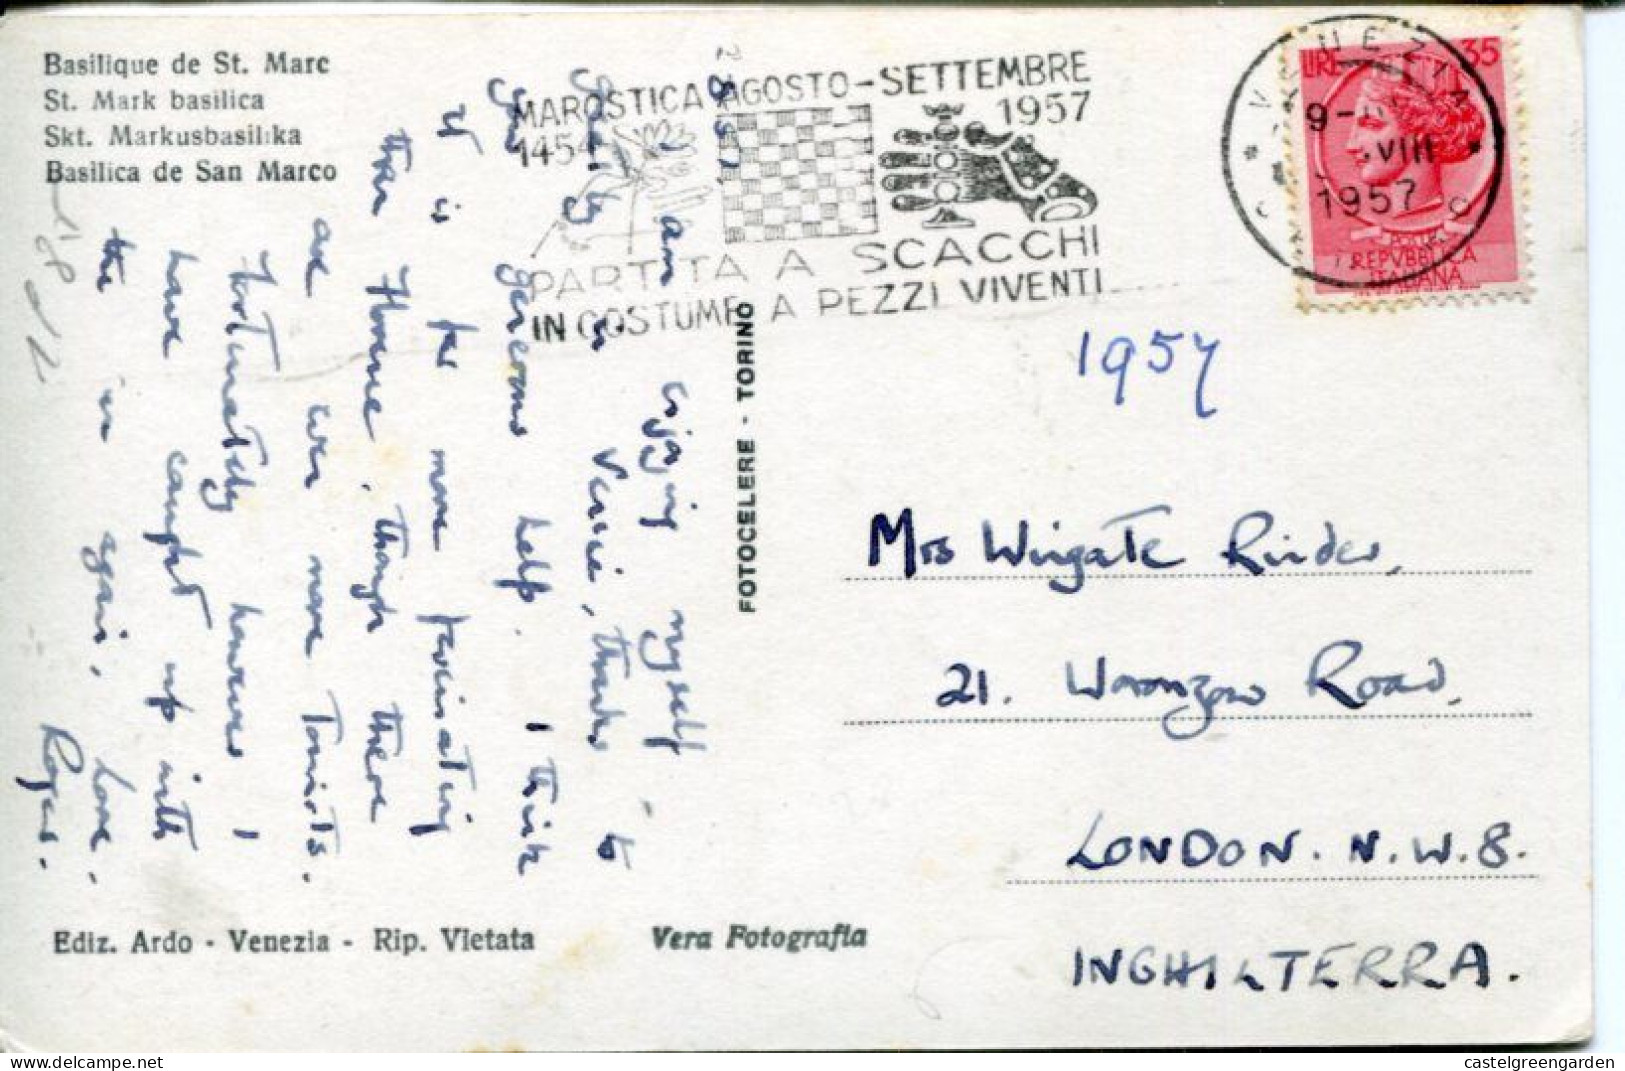 Basilique de St. Marc
St. Mark basilica
Skt. Markusbasilika
Basilica de San Marco
MAROSTICA AGOSTO-SETTEMBRE
1454 1957
PARTITA A SCACCHI
IN COSTUME A PEZZI VIVENTI
VENEZIA
9-
VIII
1957
LIRE 35
POSTE
REPVBBLICA
ITALIANA
1957
I am enjoying myself
greatly in Venice, thanks to
your generous help. I think
it is far more fascinating
than Florence, though there
are even more Tourists.
Fortunately however I
have caught up with
the in again. Love.
Roger.
FOTOCELERE - TORINO
Mrs Wingate Rinder,
21. Woronzow Road,
LONDON. N.W.8.
INGHILTERRA.
Ediz. Ardo - Venezia - Rip. Vietata
Vera Fotografia
castelgreengarden